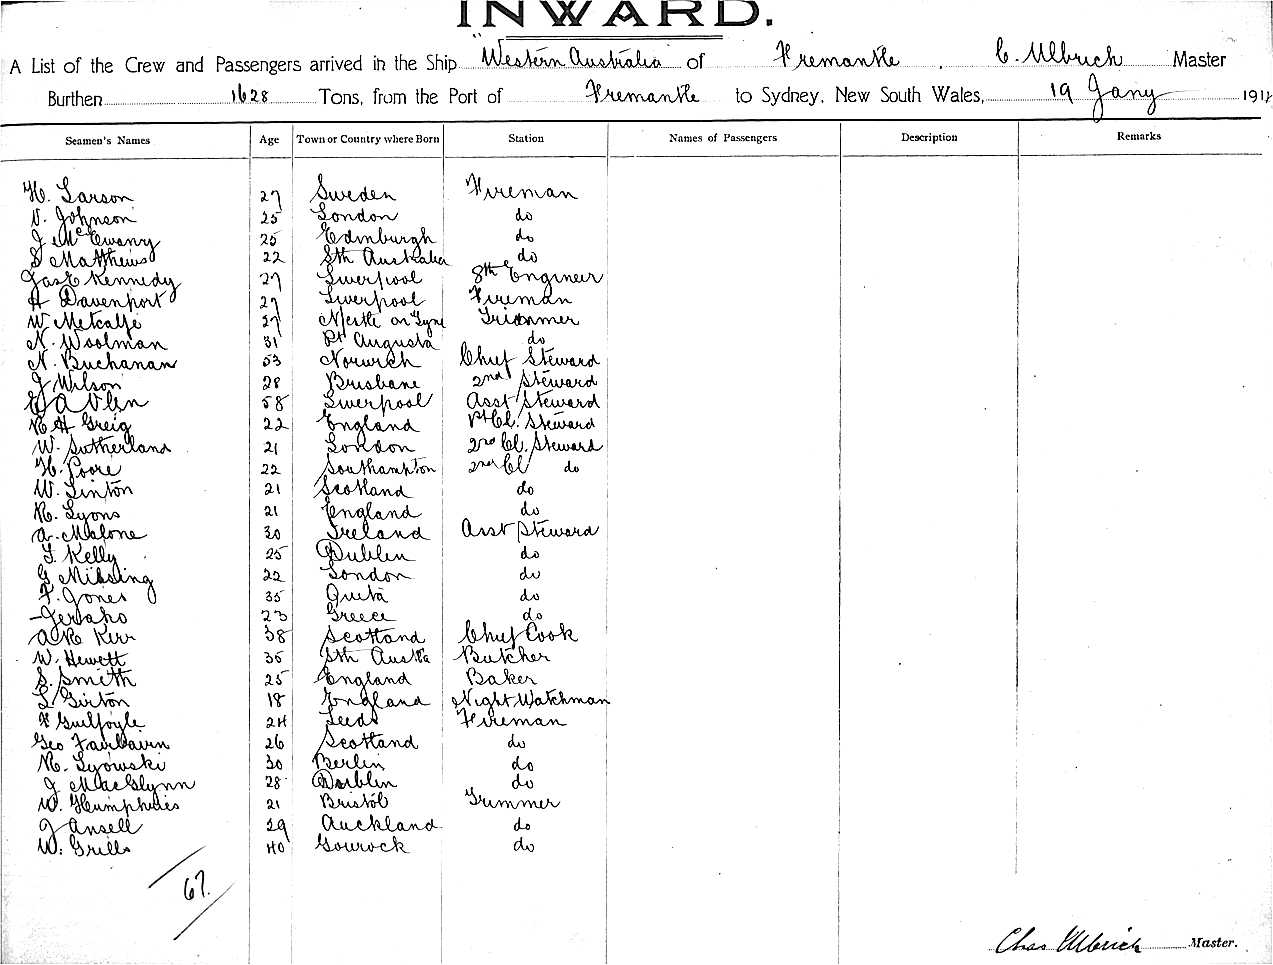 INWARD.
A List of the Crew and Passengers arrived in the Ship "Western Australia" of Fremantle, C. Ulbrich Master
Burthen 1628 Tons, from the Port of Fremantle to Sydney, New South Wales, 19 Jany 191
Seamen's Names Age Town or Country where Born Station Names of Passengers Description Remarks
H. Larson 27 Sweden Fireman
V. Johnson 25 London do
J McEwany 25 Edinburgh do
S Matthews 22 Sth Australia do
Jas E Kennedy 27 Liverpool 8th Engineer
A Davenport 27 Liverpool Fireman
W Metcalfe 27 Nestle on Tyne Trimmer
N. Woolman 31 Pt Augusta do
N. Buchanan 53 Norwich Chief Steward
J Wilson 28 Brisbane 2nd Steward
58 Liverpool Asst Steward
R H Greig 22 England 1st Cl. Steward
W. Sutherland 21 London 2nd Cl. Steward
H. Poore 22 Southampton 2nd Cl do
W. Linton 21 Scotland do
R. Lyons 21 England do
A. Malone 30 Ireland Asst Steward
T. Kelly 25 Dublin do
G Missing 22 London do
F. Jones 35 do
23 Greece do
A R Kerr 38 Scotland Chief Cook
W. Hewett 36 Sth Austla Butcher
S. Smith 25 England Baker
L Girton 18 England Night Watchman
F Guilfoyle 24 Leeds Fireman
Geo Fairbairn 26 Scotland do
R. Lyowski 30 Berlin do
J MacGlynn 28 Dublin do
W. Humphries 21 Bristol Trimmer
J Ansell 29 Auckland do
W. Grills 40 Gourock do
67.
Chas Ulbrich Master.